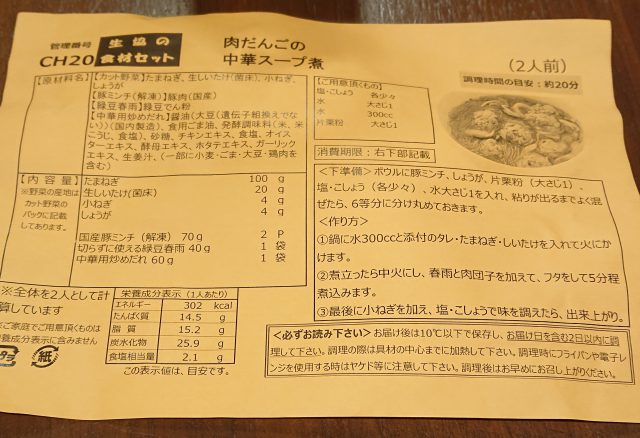 管理番号
CH20
生協の
食材セット
肉だんごの
中華スープ煮
(2人前)
調理時間の目安：約20分
【原材料名】
【カット野菜】たまねぎ、生しいたけ(菌床)、小ねぎ、
しょうが
【豚ミンチ(解凍)】豚肉(国産)
【緑豆春雨】緑豆でん粉
【中華用炒めだれ】醤油(大豆(遺伝子組換えでな
い))(国内製造)、食用ごま油、発酵調味料(米、米
こうじ、食塩)、砂糖、チキンエキス、食塩、オイス
ターエキス、酵母エキス、ホタテエキス、ガーリック
エキス、生姜汁、(一部に小麦・ごま・大豆・鶏肉を
含む)
【ご用意頂くもの】
塩・こしょう 各少々
水 大さじ1
水 300cc
片栗粉 大さじ1
消費期限：右下部記載
【内容量】
※野菜の産地は
カット野菜の
パックに記載
してあります。
たまねぎ 100 g
生しいたけ(菌床) 20 g
小ねぎ 4 g
しょうが 4 g
国産豚ミンチ(解凍) 70g 2 P
切らずに使える緑豆春雨 40g 1 袋
中華用炒めだれ 60g 1 袋
<下準備> ボウルに豚ミンチ、しょうが、片栗粉(大さじ1)、
塩・こしょう(各少々)、水大さじ1を入れ、粘りが出るまでよく混
ぜたら、6等分に分け丸めておきます。
<作り方>
①鍋に水300ccと添付のタレ・たまねぎ・しいたけを入れて火にか
けます。
②煮立ったら中火にし、春雨と肉団子を加えて、フタをして5分程
煮込みます。
③最後に小ねぎを加え、塩・こしょうで味を調えたら、出来上がり。
※全体を2人として計
算しています
※ご家庭でご用意頂くものは
栄養成分表示に含みません
紙
栄養成分表示(1人あたり)
エネルギー 302 kcal
たんぱく質 14.5 g
脂質 15.2 g
炭水化物 25.9 g
食塩相当量 2.1 g
この表示値は、目安です。
<必ずお読み下さい> お届け後は10℃以下で保存し、お届け日を含む2日以内に調
理して下さい。調理の際は具材の中心までに加熱して下さい。調理時にフライパンや電子レ
ンジを使用する時はヤケド等に注意して下さい。調理後はお早めにお召し上がりください。